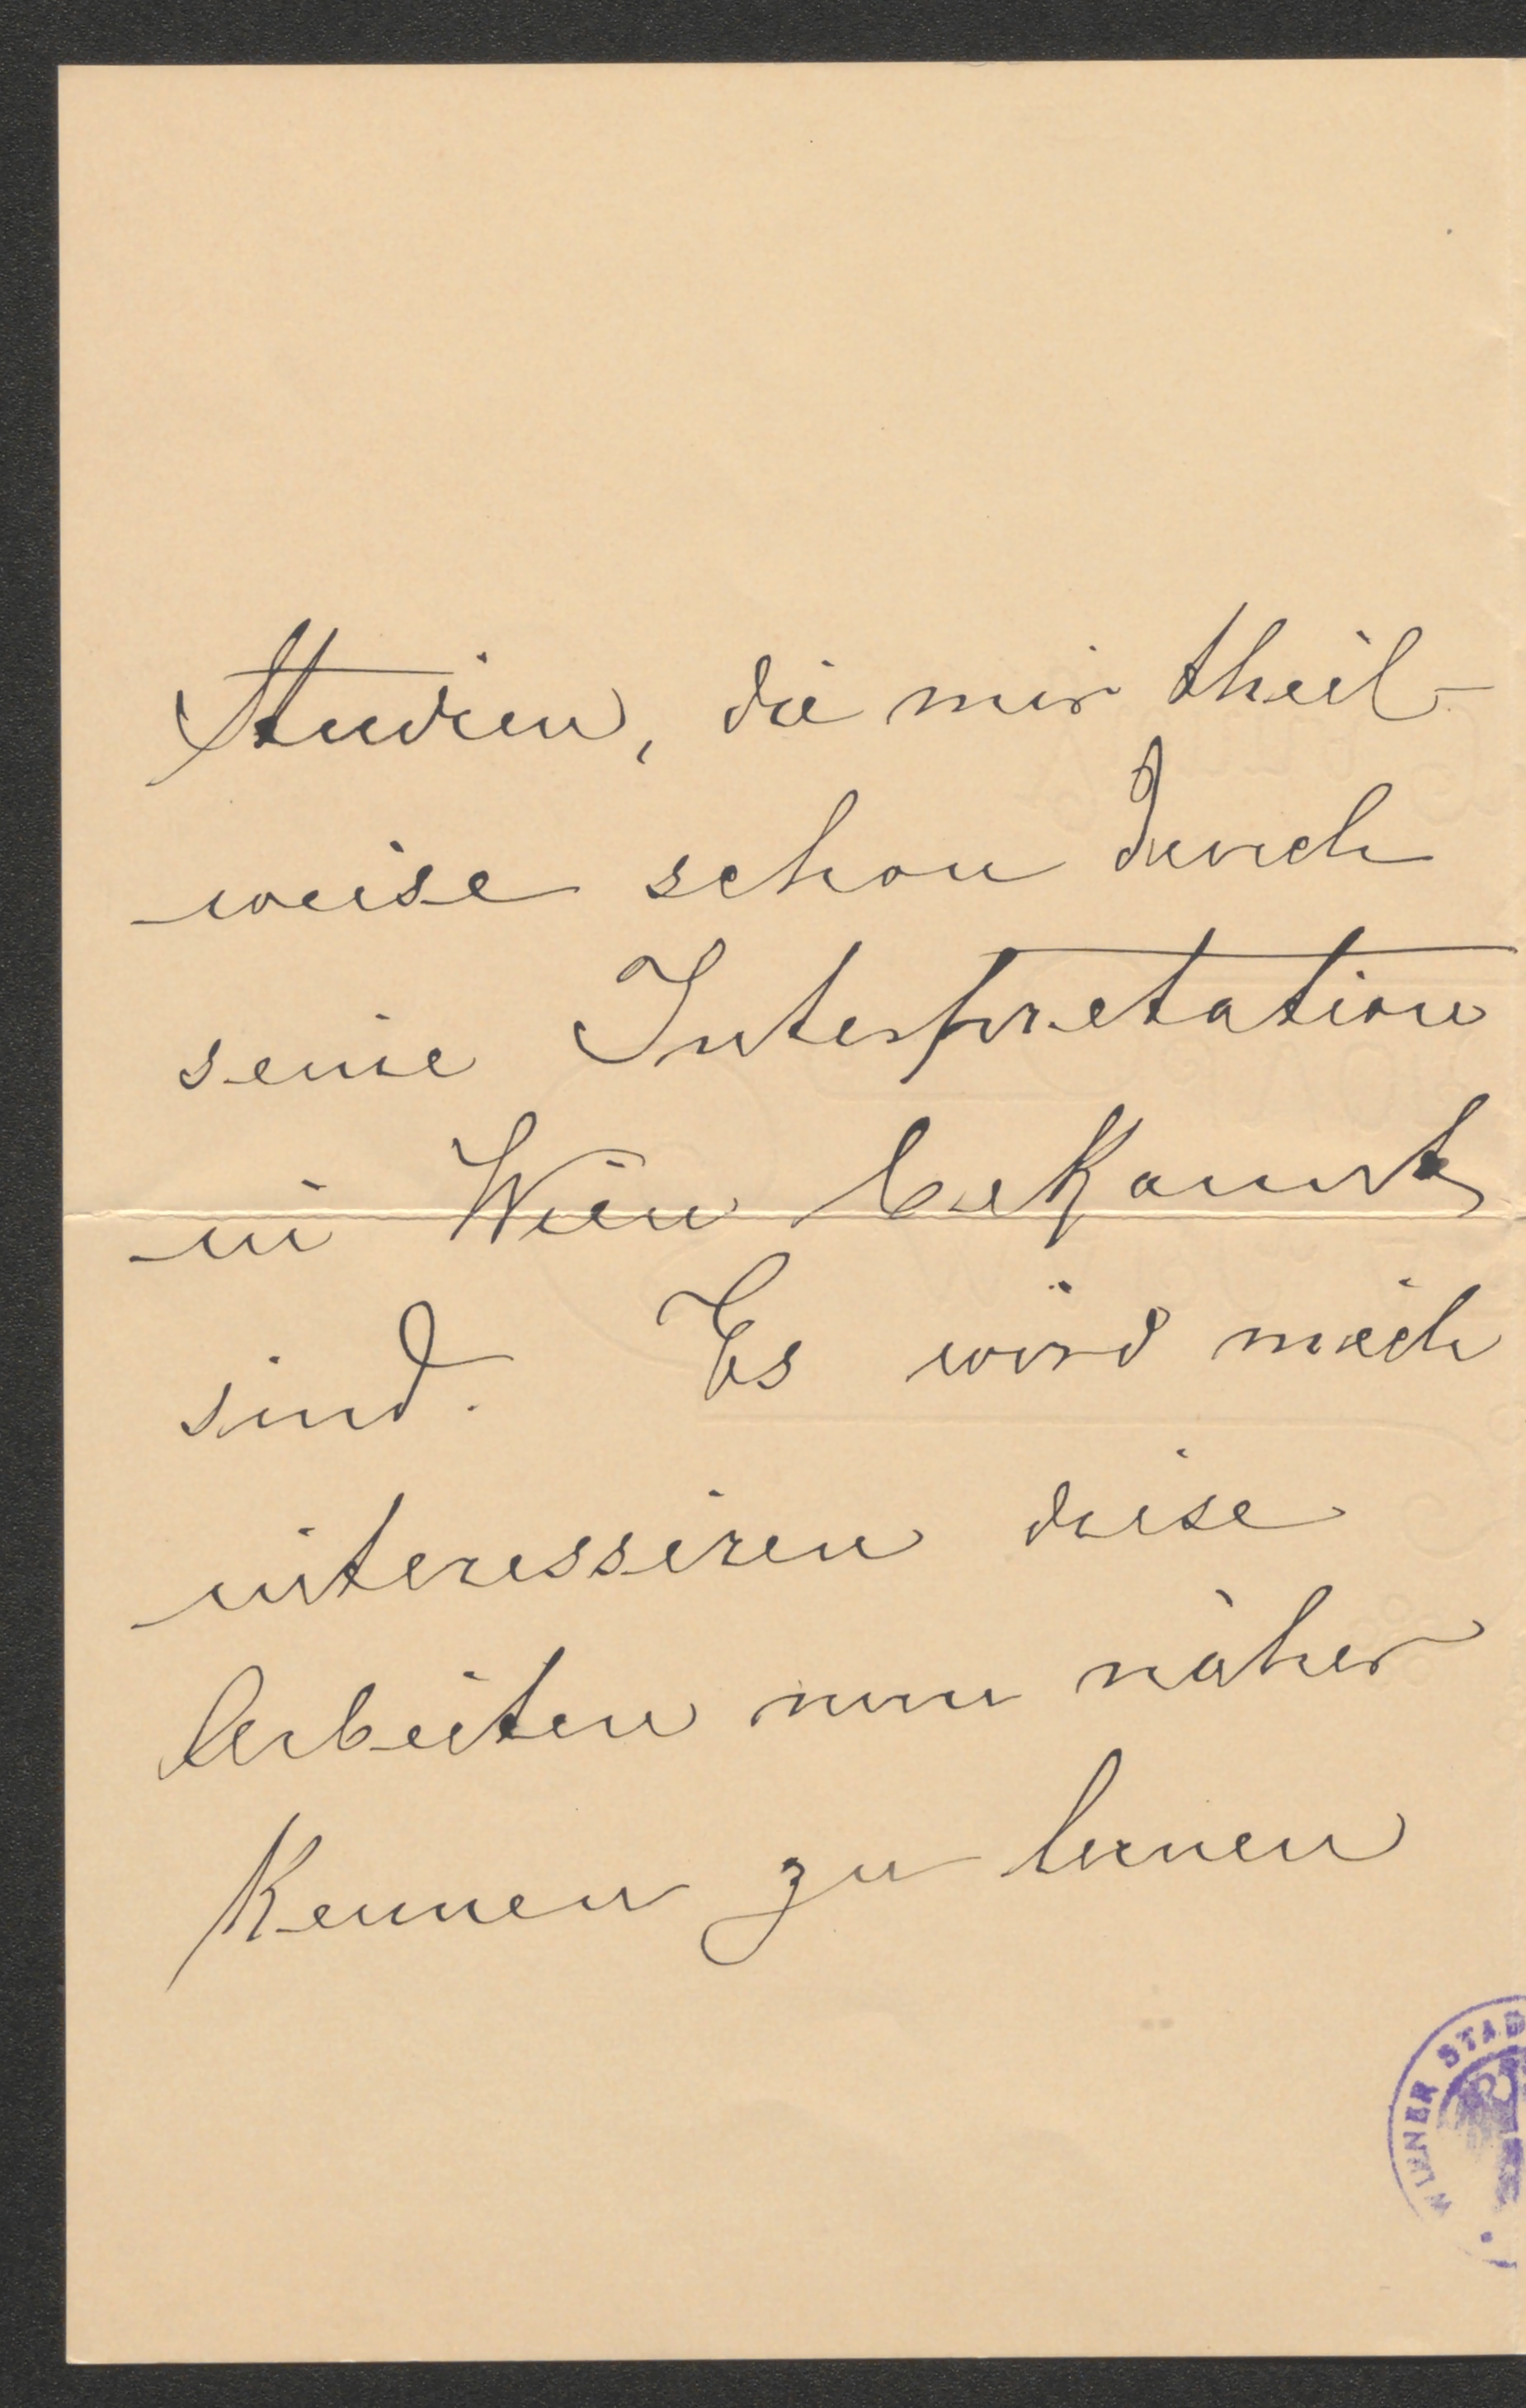 Studien, die mir theil-
weise schon durch
seine Interpretation
in Wien bekannt
sind. Es wird mich
interessiren diese
Arbeiten nun näher
kennen zu lernen
WIENER STAD